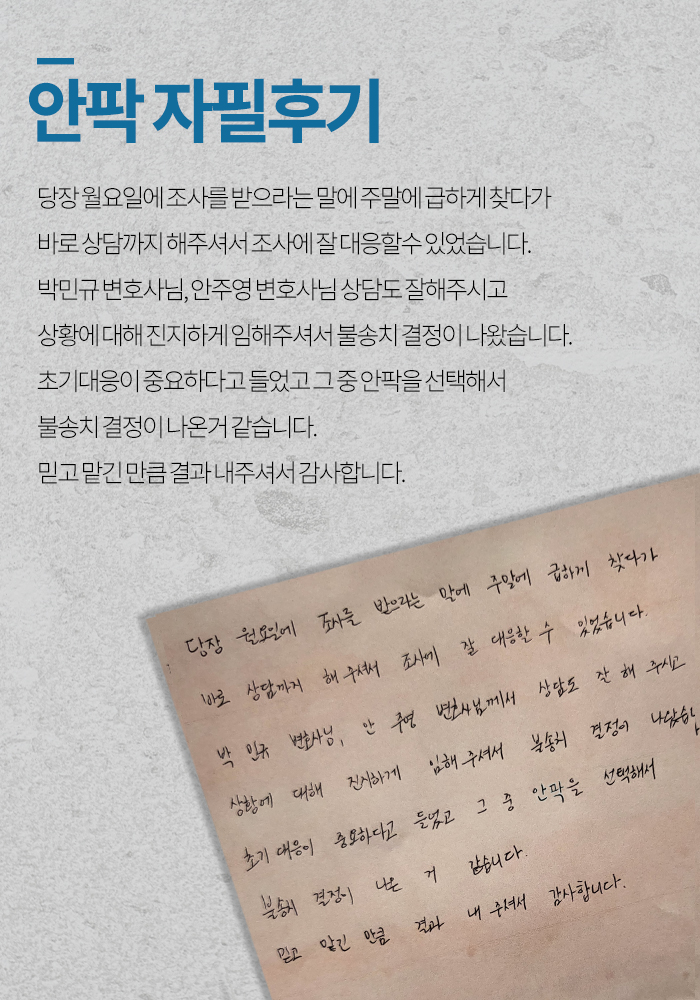 안팍 자필후기
당장 월요일에 조사를 받으라는 말에 주말에 급하게 찾다가
바로 상담까지 해주셔서 조사에 잘 대응할수 있었습니다.
박민규 변호사님, 안주영 변호사님 상담도 잘해주시고
상황에 대해 진지하게 임해주셔서 불송치 결정이 나왔습니다.
초기대응이 중요하다고 들었고 그 중 안팍을 선택해서
불송치 결정이 나온거 같습니다.
믿고 맡긴 만큼 결과 내주셔서 감사합니다.
당장 월요일에 조사를 받으라는 말에 주말에 급하게 찾다가
바로 상담까지 해주셔서 조사에 잘 대응할 수 있었습니다.
박 민규 변호사님, 안 주영 변호사님께서 상담도 잘 해 주시고
상황에 대해 진지하게 임해 주셔서 불송치 결정이 나왔습
초기 대응이 중요하다고 들었고 그 중 안팍을 선택해서
불송치 결정이 나온 거 같습니다.
믿고 맡긴 만큼 결과 내 주셔서 감사합니다.